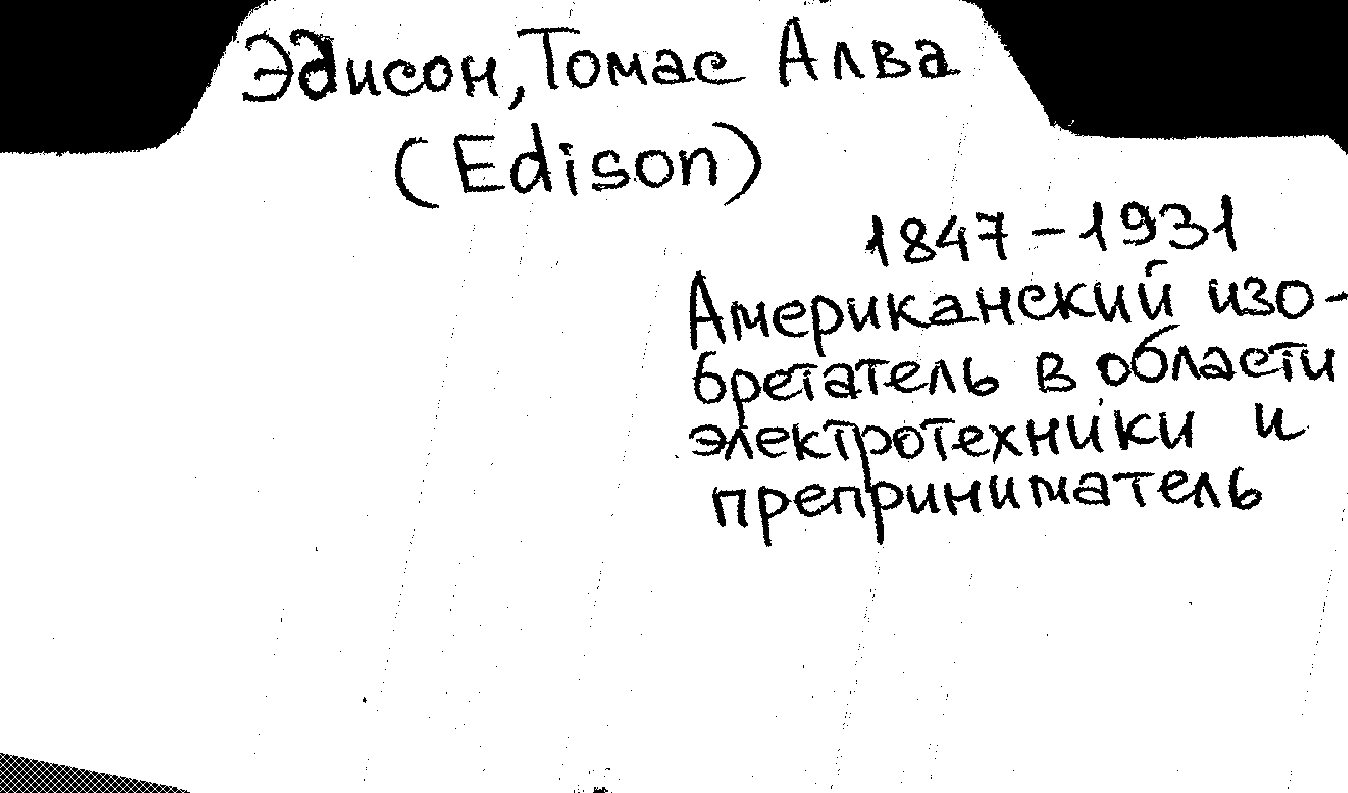 Эдисон, Томас Алва
(Edison)
1847 – 1931
Американский изо-
бретатель в области
электротехники и
преприниматель